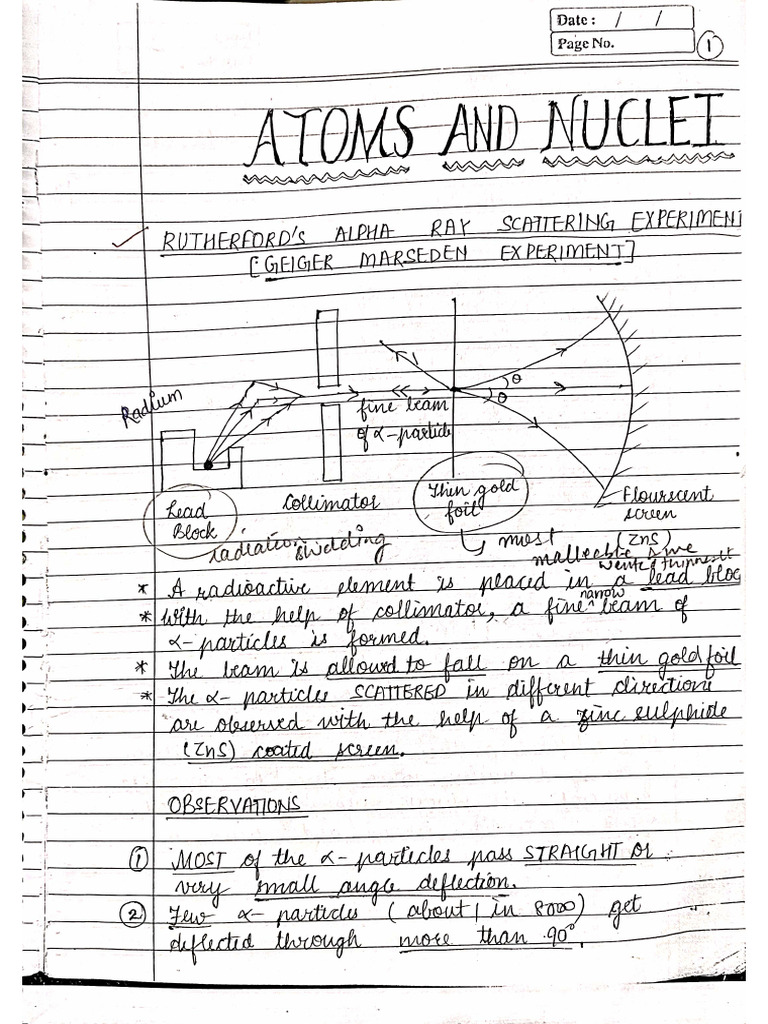 Date : / /
Page No. 1
ATOMS AND NUCLEI
RUTHERFORD'S ALPHA RAY SCATTERING EXPERIMENT
[GEIGER MARSEDEN EXPERIMENT]
Radium
fine beam
of α-particle
θ
θ
Lead
Block
Collimator
Thin gold
foil
Flourscent
screen
(ZnS)
radiation shielding
most
malleable
* A radioactive element is placed in a lead bloc
narrow
* With the help of collimator, a fine beam of
α-particles is formed.
* The beam is allowd to fall on a thin gold foil
* The α- particles SCATTERED in different directions
are observed with the help of a zinc sulphide
(ZnS) coated screen.
OBSERVATIONS
① MOST of the α- particles pass STRAIGHT or
very small angle deflection.
② Few α- particles (about 1 in 8000) get
deflected through more than 90°.